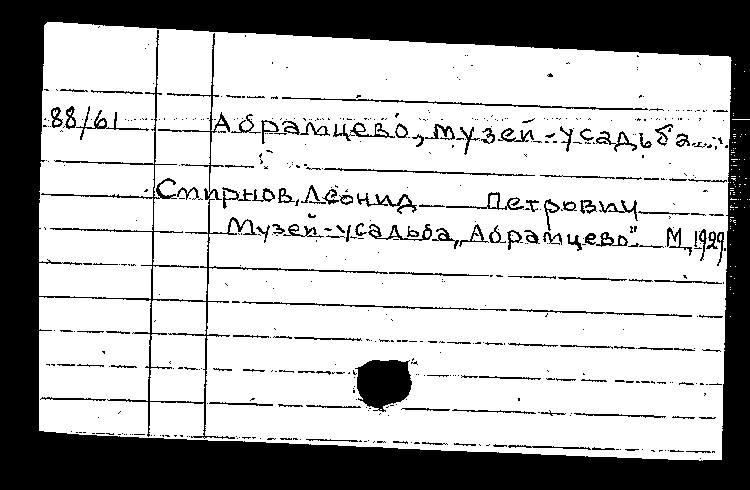 88/61 Абрамцево, музей-усадьба
Смирнов, Леонид Петрович
Музей-усадьба „Абрамцево". М., 1929.